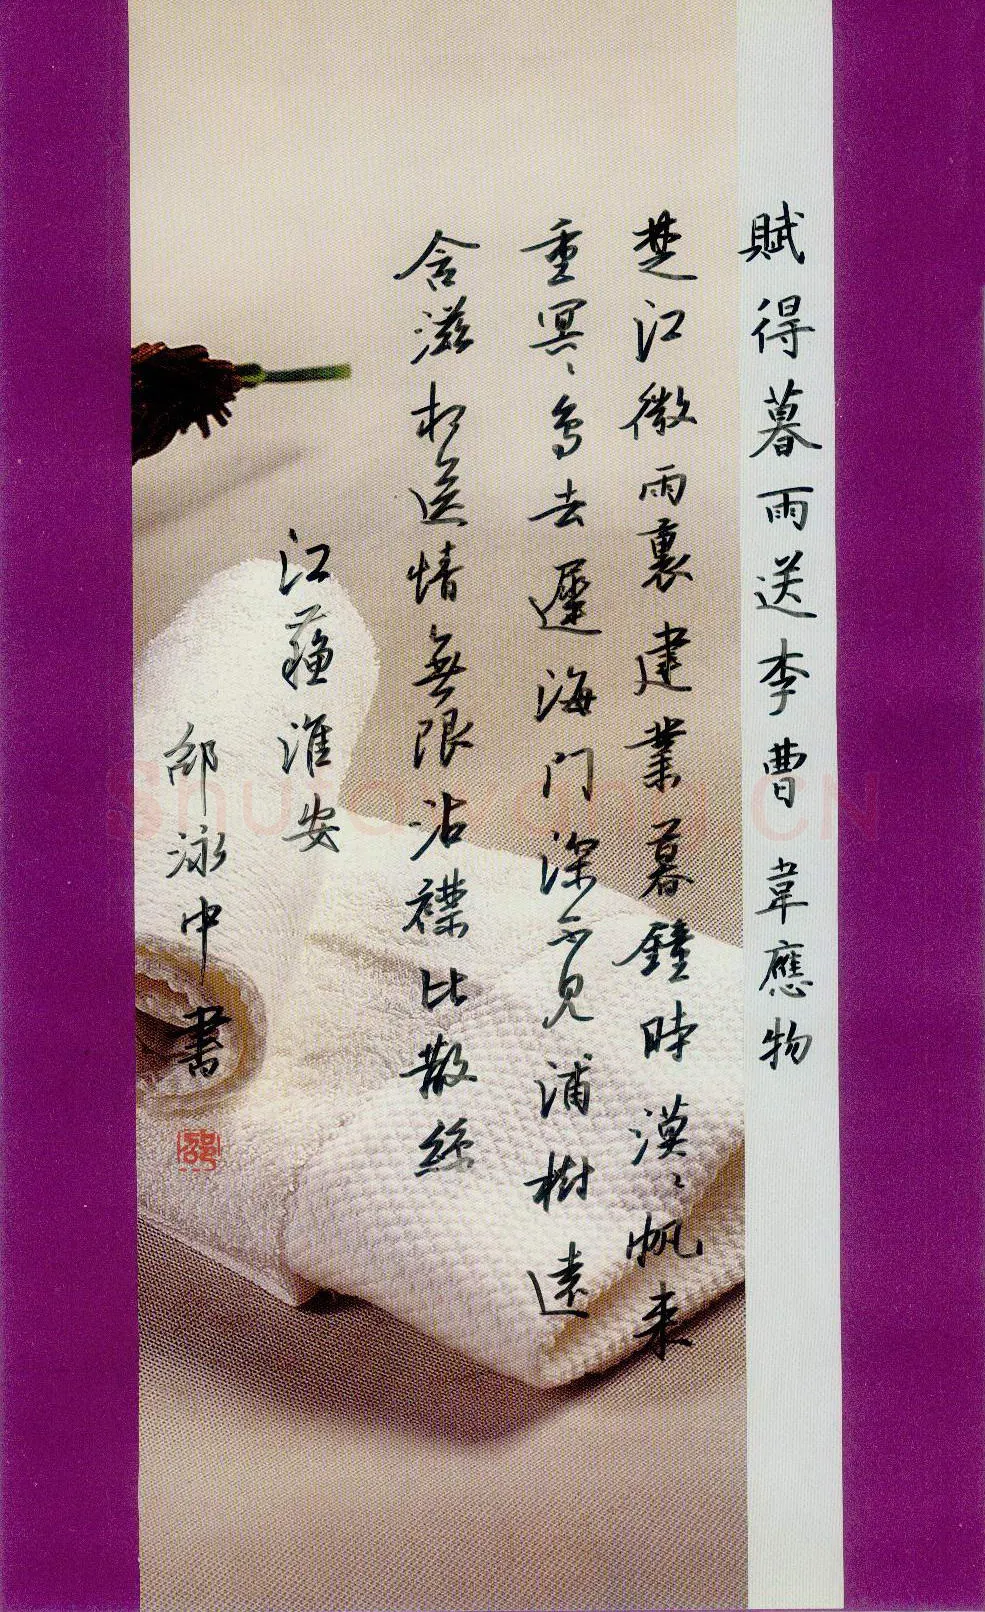 賦得暮雨送李曹 韋應物
楚江微雨裏建業暮鐘時漠〻帆来
重冥〻鸟去遲海门深不見浦樹遠
含滋相送情無限沾襟比散絲
江蘇淮安
邰泳中書
邰
Shufawang.CN